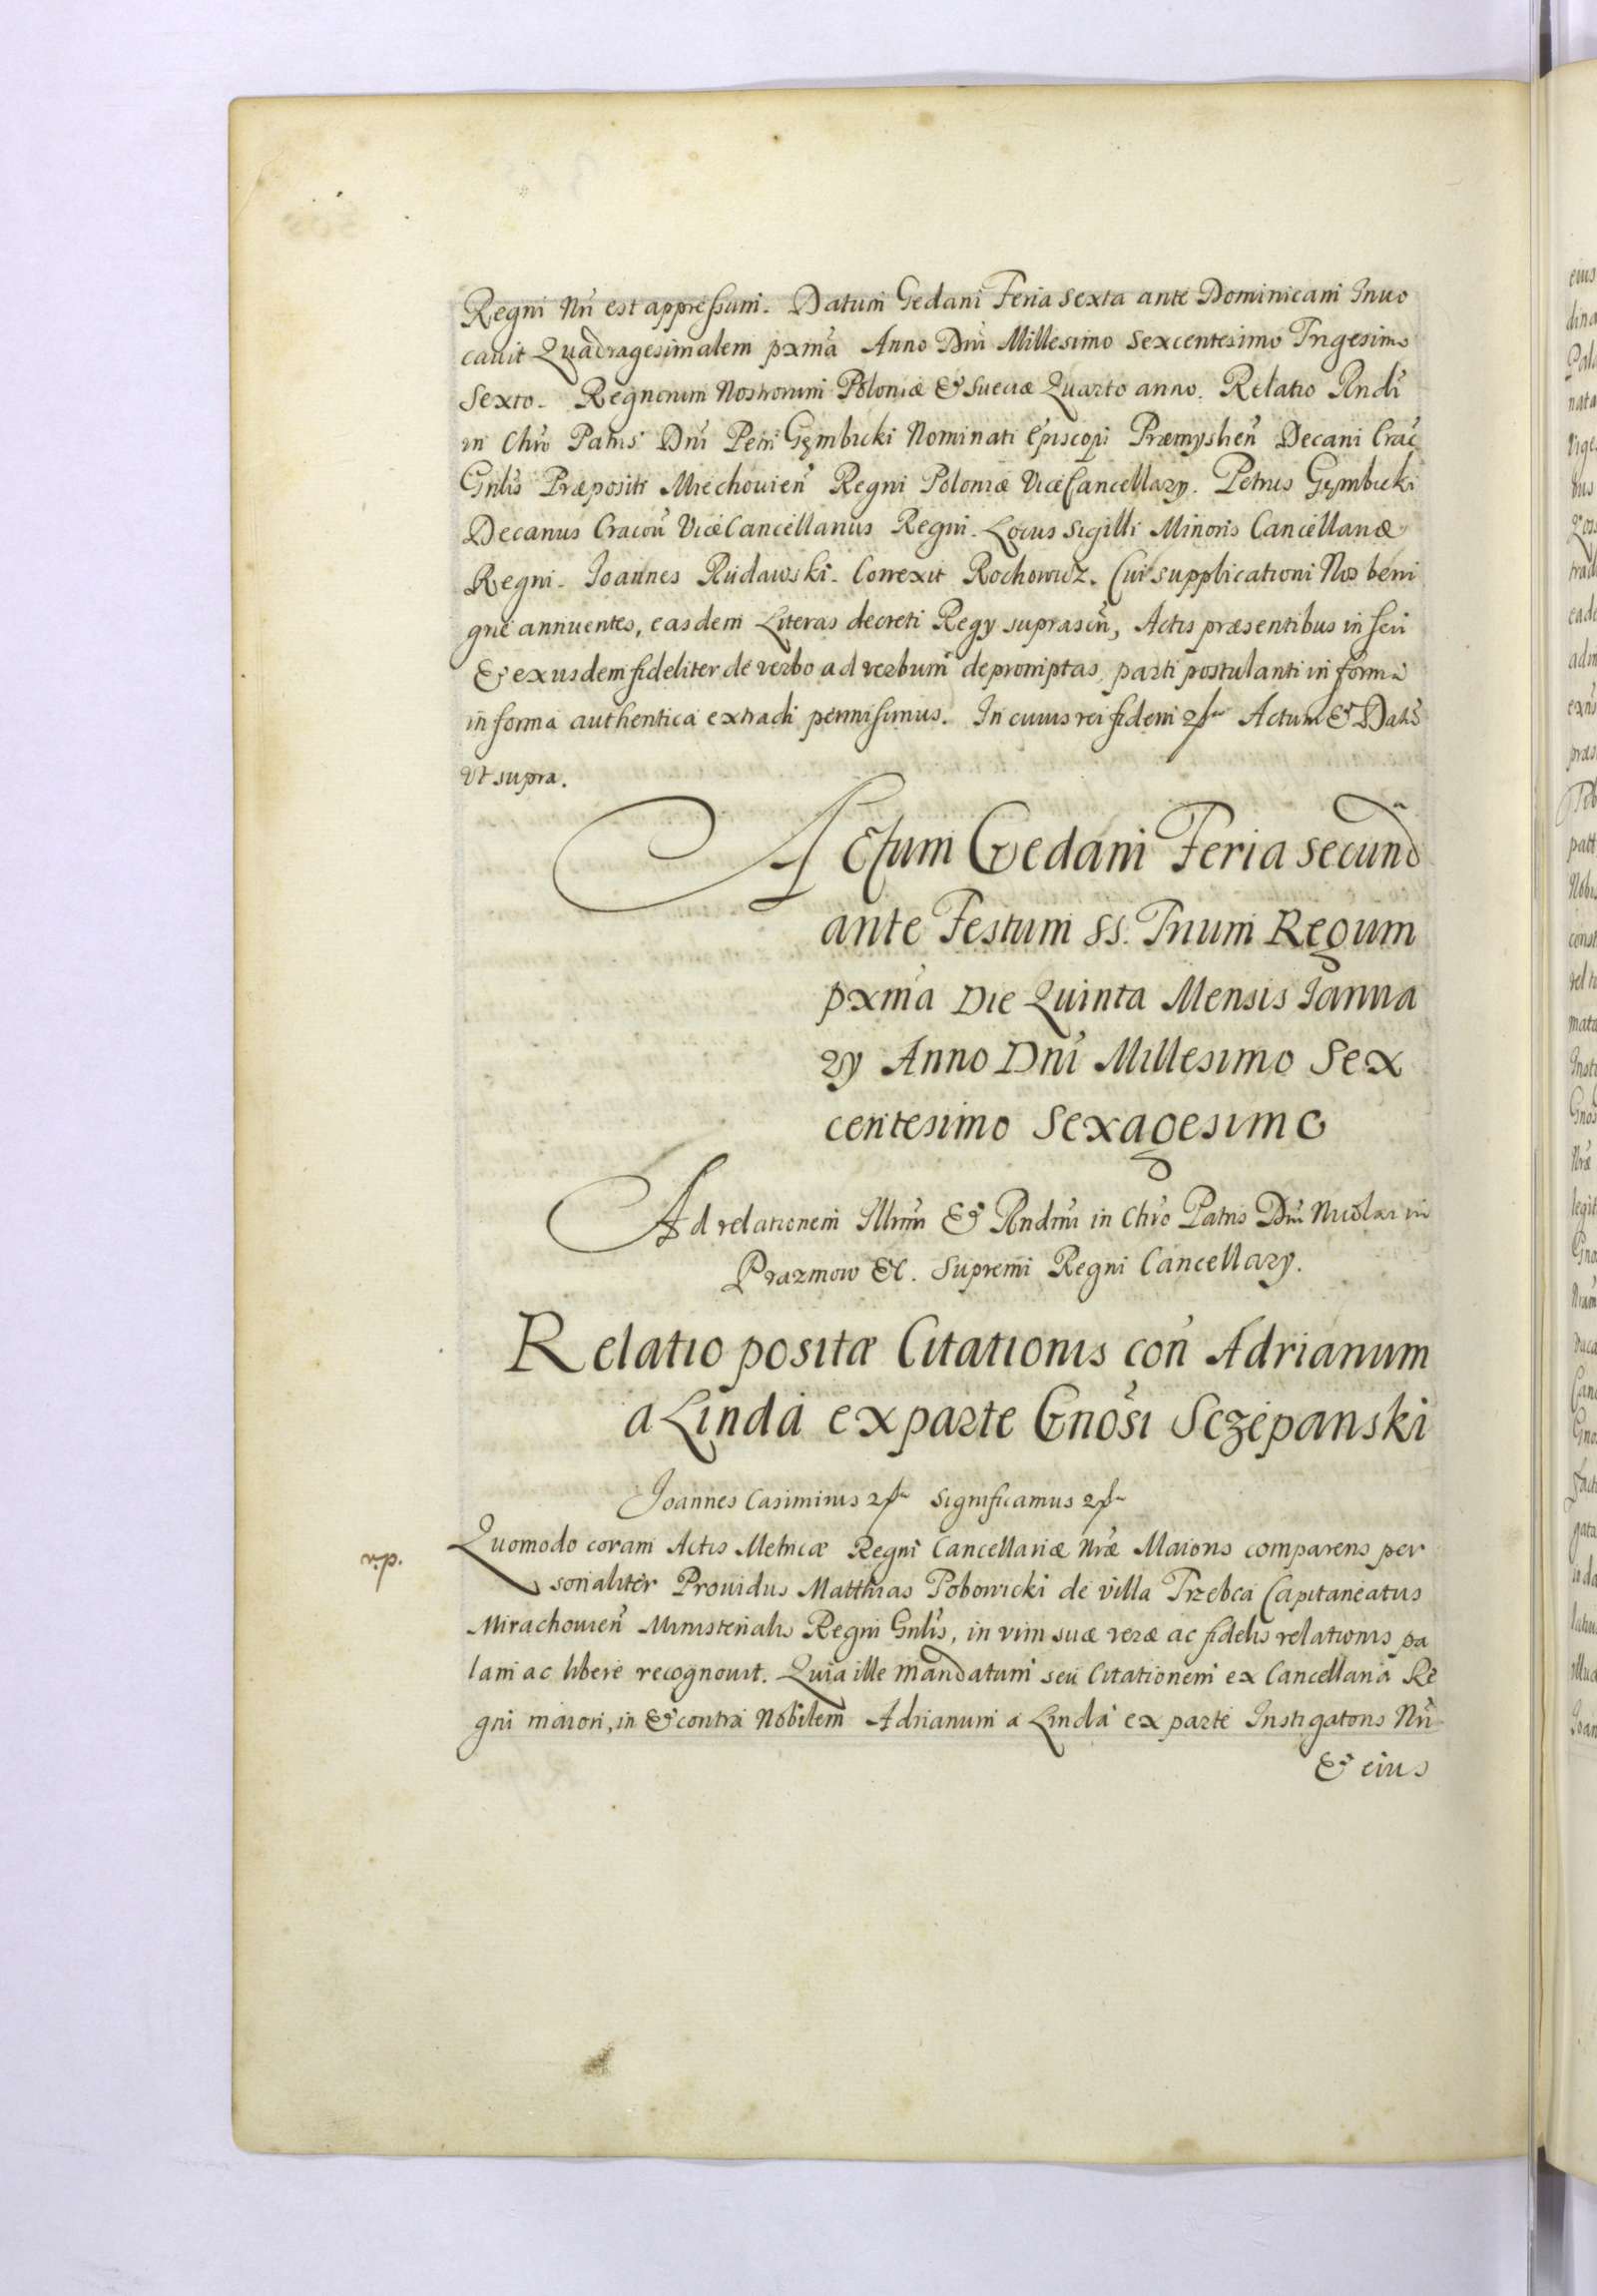 Regni Nri est appressum. Datum Gedani Feria sexta ante Dominicam Inuo
cauit Quadragesimalem pxma Anno Dni Millesimo Sexcentesimo Trigesimo
Sexto. Regnorum Nostrorum Poloniæ & Sueciæ Quarto anno. Relatio Rndi
in Chro Patris Dni Petri Gębicki Nominati Episcopi Præmyslien Decani Crac
Gnlis Præpositi Miechouien Regni Poloniæ ViceCancellary. Petrus Gembicki
Decanus Cracou ViceCancellarius Regni. Locus Sigilli Minoris Cancellariæ
Regni. Joannes Rudawski. Correxit Rochowicz. Cui supplicationi Nos beni
gne annuentes, easdem Literas decreti Regy suprascri, Actis præsentibus inseri
& exijsdem fideliter de verbo ad verbum depromptas, parti postulanti in forma
in forma authentica extradi permisimus. In cuius rei fidem etc Actum & Datu
vt supra.
Actum Gedani Feria secund
ante Festum SS. Trium Regum
pxma Die Quinta Mensis Janua
ry Anno Dni Millesimo Sex
centesimo Sexagesimo
Ad relationem Illrmi & Rndmi in Chro Patris Dni Nicolai in
Prazmow &c. Supremi Regni Cancellary.
Relatio positæ Citationis con Adrianum
a Linda ex parte Gnosi Sczepanski
Joannes Casimirus etc Significamus etc
r.p.
Quomodo coram Actis Metricæ Regni Cancellariæ Nræ Maioris comparens per
sonaliter Prouidus Matthias Pobowicki de villa Trzebca Capitaneatus
Mirachouien Ministerialis Regni Gnlis, in vim suæ veræ ac fidelis relationis pa
lam ac libere recognouit. Quia ille mandatum seu Citationem ex Cancellaria Re
gni maiori, in & contra Nobilem Adrianum a Linda ex parte Instigatoris Nri
& eius